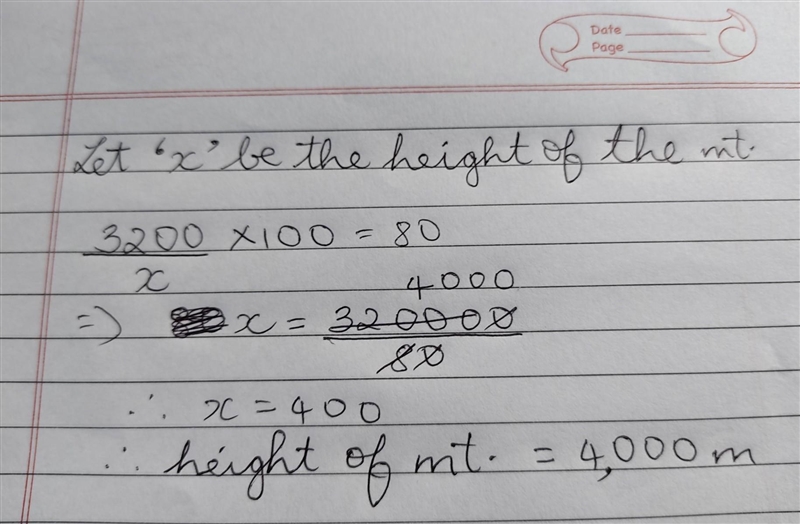 Date
Page
Let 'x' be the height of the mt.
3200/x ×100 = 80
4000
=> x = 320000/80
∴ x = 400
∴ height of mt. = 4,000 m